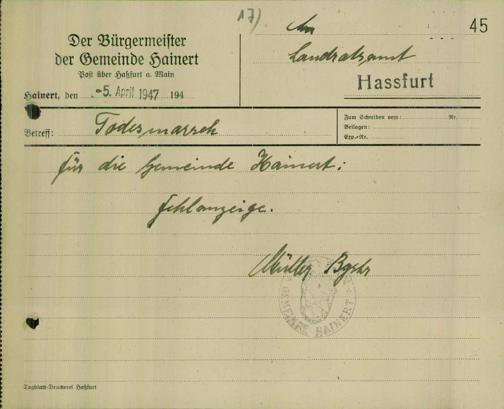 17)
An
45
Der Bürgermeister
der Gemeinde Hainert
Post über Haßfurt a. Main
Landratsamt
Hassfurt
Hainert, den -5. April 1947 194
Betreff: Todesmarsch
Zum Schreiben vom: Nr.
Beilagen:
Exp.-Nr.
für die Gemeinde Hainert:
Fehlanzeige.
Müller Bgstr
GEMEINDE HAINERT
Tagblatt-Druckerei Haßfurt